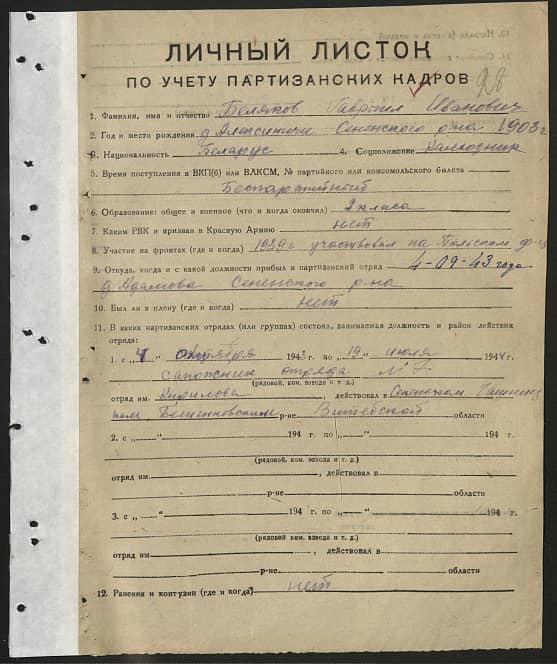 ЛИЧНЫЙ ЛИСТОК
ПО УЧЕТУ ПАРТИЗАНСКИХ КАДРОВ 28
1. Фамилия, имя и отчество Беляков Гавриил Иванович
2. Год и место рождения д. Алексиничи Сененского р-на 1903 г
3. Национальность Беларус 4. Соцположение Калхозник
5. Время поступления в ВКП(б) или ВЛКСМ, № партийного или комсомольского билета
Беспартийный
6. Образование: общее и военное (что и когда окончил) 2 класа
7. Каким РВК и призван в Красную Армию нет
8. Участие на фронтах (где и когда) 1939 г участвовал на Польском
9. Откуда, когда и с какой должности прибыл в партизанский отряд 4-09-43 года
д. Адамова Сененского р-на
10. Был ли в плену (где и когда) нет
11. В каких партизанских отрядах (или группах) состоял, занимаемая должность и район действия
отряда:
1. с „4“ октября 1943 г. по „19“ июля 1944 г.
сапожник отряда № 7
(рядовой, ком. взвода и т. д.)
отряд им. Кирилова, действовал в Сененском
Бешенковичском р-не Витебской области
2. с „ “ 194 г. по „ “ 194 г.
(рядовой, ком. взвода и т. д.)
отряд им. , действовал в
р-не области
3. с „ “ 194 г. по „ “ 194 г.
(рядовой, ком. взвода и т. д.)
отряд им. , действовал в
р-не области
12. Ранения и контузии (где и когда) нет